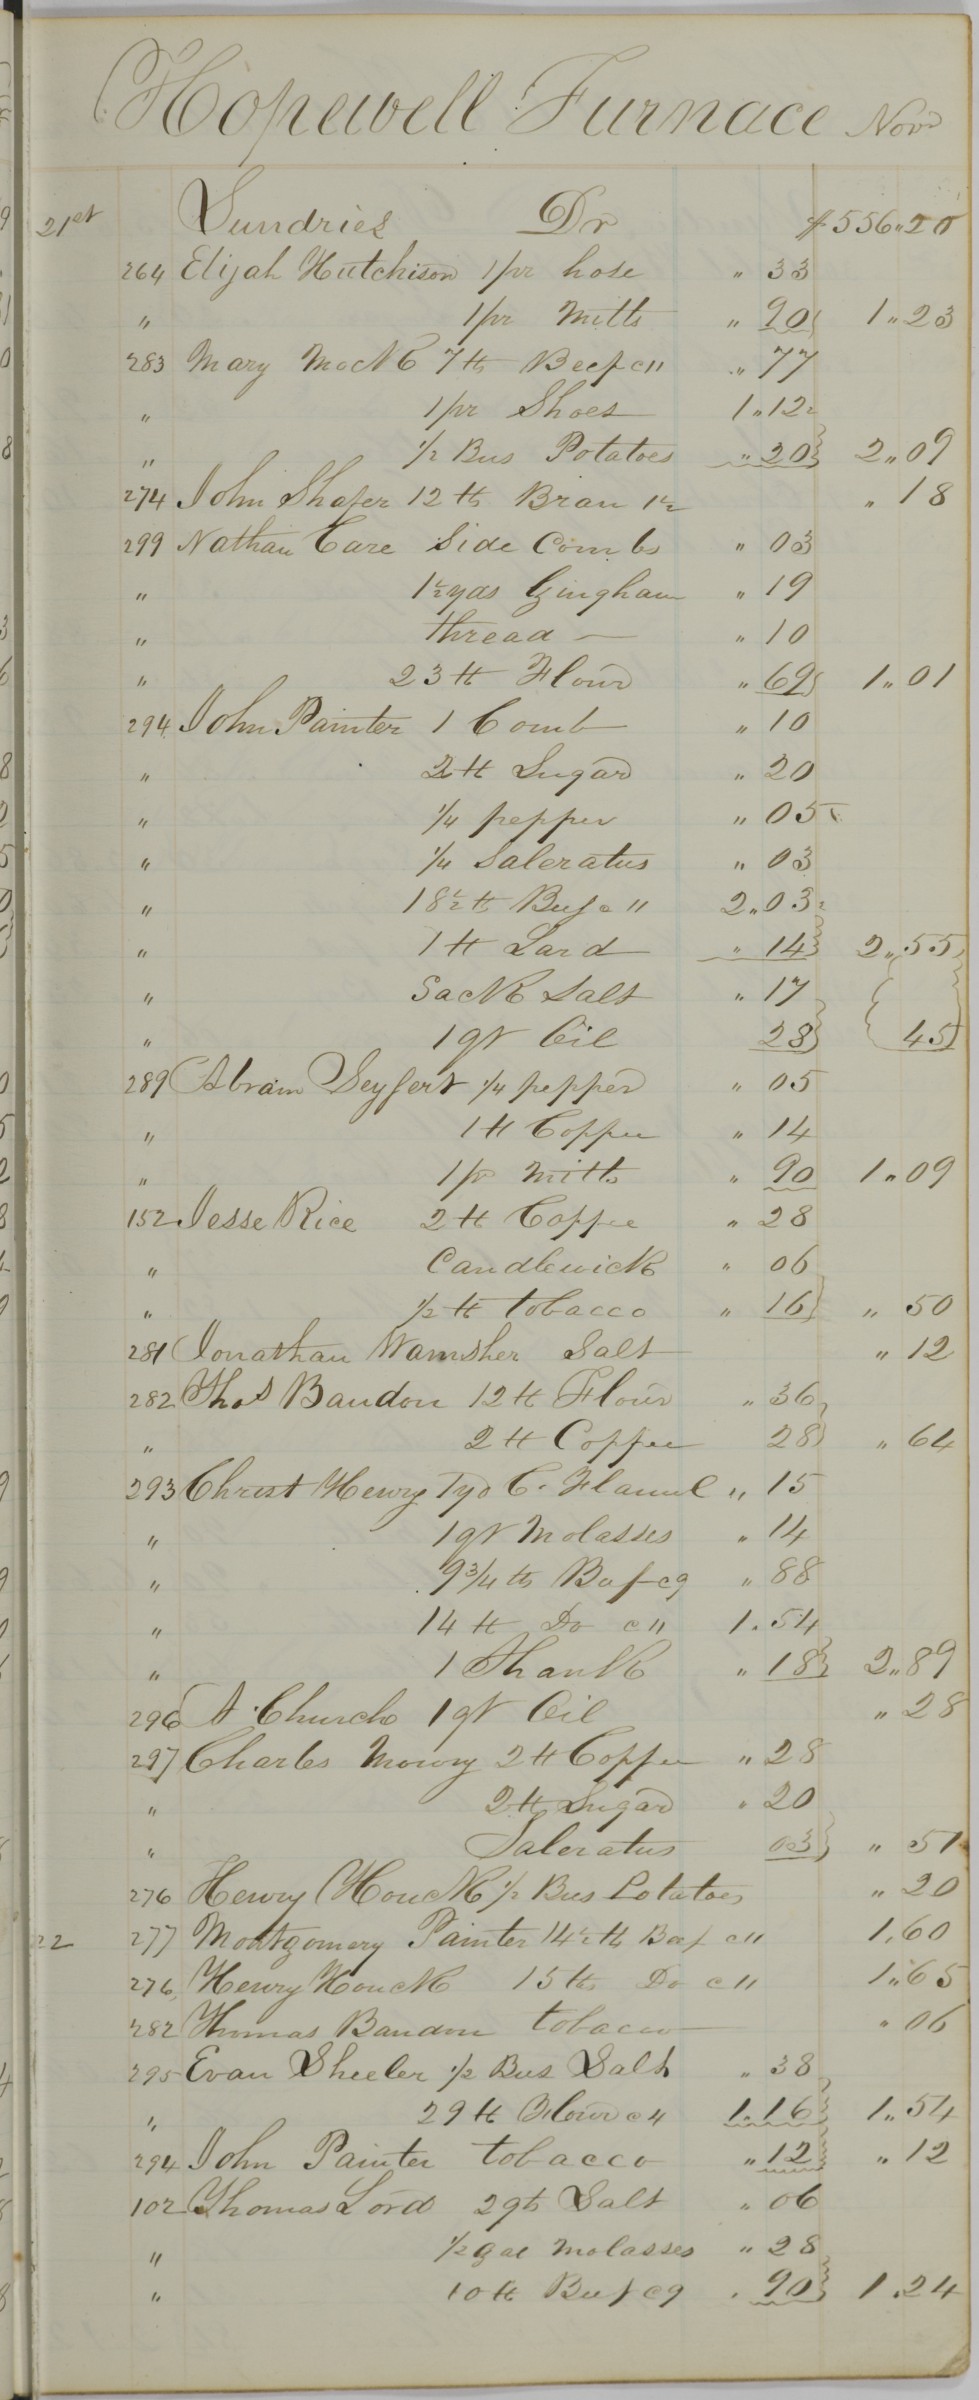 Hopewell Furnace Novr
21st Sundries Dr $556"20
264 Elijah Hutchison 1 pr hose " 33
" 1 pr Mitts " 90 1"23
283 Mary MacK 7 lb Beef c 11 " 77
" 1 pr Shoes 1"12½
" 1/2 Bus Potatoes " 20 2"09
274 John Shafer 12 lb Bran 1½ " 18
299 Nathan Care Side Combs " 03
" 1½ yds Gingham " 19
" thread — " 10
" 23 lb Flour " 69 1"01
294 John Painter 1 Comb " 10
" 2 lb Sugar " 20
" 1/4 pepper " 05
" 1/4 Saleratus " 03
" 18½ lb Beef c 11 2"03½
" 1 lb Lard " 14 2"55
" Sack Salt " 17
" 1 qt Oil 28 45
289 Abram Seyfert 1/4 pepper " 05
" 1 lb Coffee " 14
" 1 pr Mitts " 90 1"09
152 Jesse Rice 2 lb Coffee " 28
" Candlewick " 06
" 1/2 lb tobacco " 16 " 50
281 Jonathan Wamsher Salt " 12
282 Thos Baudon 12 lb Flour " 36
" 2 lb Coffee 28 " 64
293 Christ Henry 1 yd C. Flannel " 15
" 1 qt Molasses " 14
" 9 3/4 lb Beef c 9 " 88
" 14 lb Do c 11 1.54
" 1 Shank " 18 2"89
296 A Church 1 qt Oil " 28
297 Charles Mowry 2 lb Coffee " 28
" 2 lb Sugar " 20
" Saleratus 03 " 51
276 Henry Houck 1/2 Bus Potatoes " 20
22 277 Montgomery Painter 14½ lb Beef c 11 1.60
276 Henry Houck 15 lb Do c 11 1"65
282 Thomas Baudon tobacco " 06
295 Evan Sheeler 1/2 Bus Salt " 38
" 29 lb Flour c 4 1.16 1"54
294 John Painter tobacco " 12 " 12
102 Thomas Lord 2 qts Salt " 06
" 1/2 gal Molasses " 28
" 10 lb Beef c 9 " 90 1.24